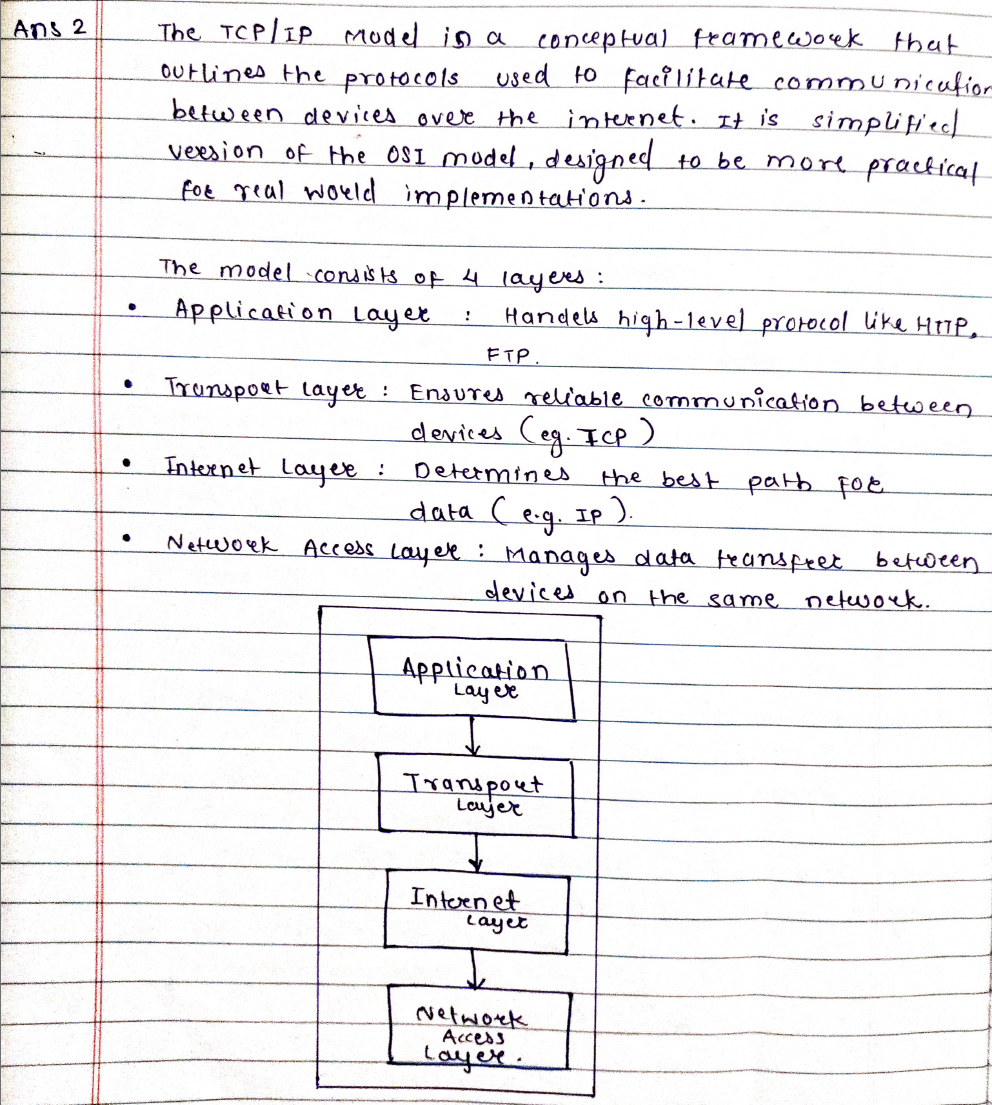 Ans 2 The TCP/IP Model is a conceptual framework that
outlines the protocols used to facilitate communication
between devices over the internet. It is simplified
version of the OSI model, designed to be more practical
for real world implementations.
The model consists of 4 layers :
• Application Layer : Handels high-level protocol like HTTP,
FTP.
• Transport layer : Ensures reliable communication between
devices (eg. TCP)
• Internet Layer : Determines the best path for
data (e.g. IP).
• Network Access Layer : Manages data transfer between
devices on the same network.
Application
Layer
Transport
Layer
Internet
Layer
Network
Access
Layer.